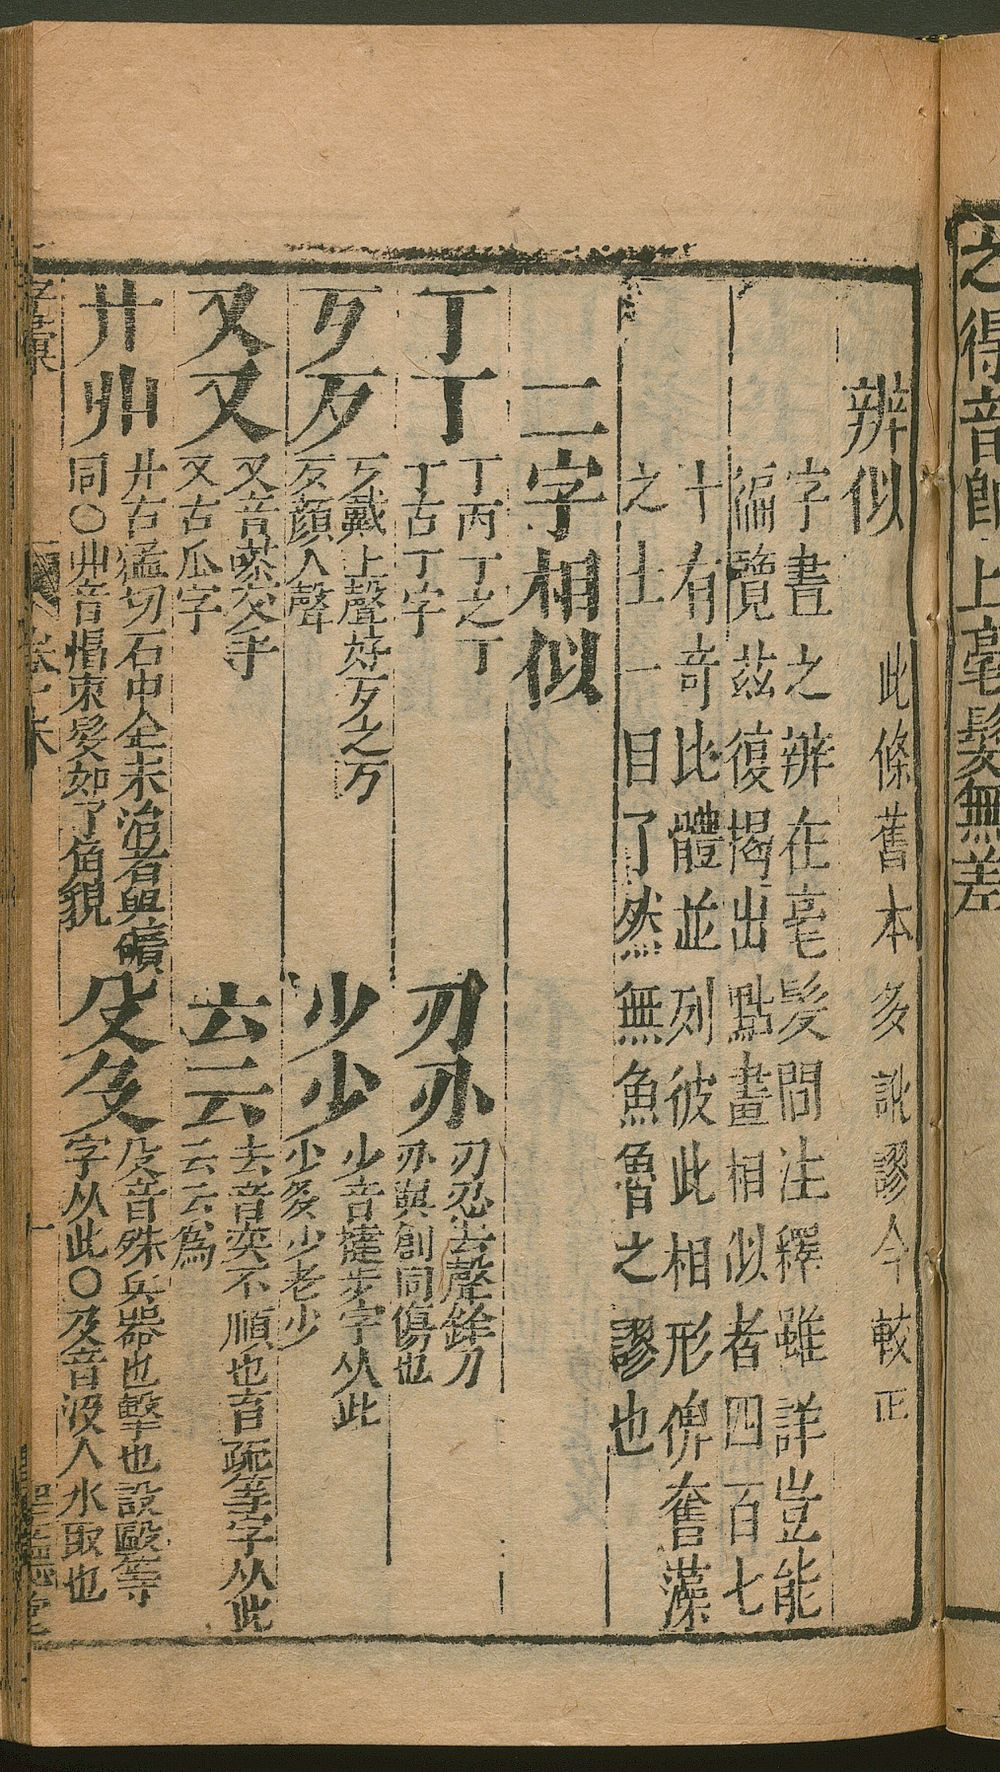 之得音郎上毫髮無差
辨似 此條舊本多訛謬今較正
字書之辨在毫髮間注釋雖詳豈能
徧覽茲復揭出點畫相似者四百七
十有奇比體並列彼此相形俾奮藻
之士一目了然無魚魯之謬也
二字相似
丁丅
丁丙丁之丁
丅古丁字
刃刅
刃忍去聲鋒刀
刅與創同傷也
丂歹
丂戴上聲好歹之丂
歹顏入聲
少少
少音撻步字从此
少多少老少
㕚又
㕚音蚤㕚手
又古瓜字
𠫓云
𠫓音突不順也育疏等字从此
云云為
廾丱
廾古猛切石中金未治者與礦
同〇丱音慣束髮如丫角貌
殳𠬛
殳音殊兵器也擊也設毆等
字从此〇𠬛音沒入水取也
字彙 卷末 十